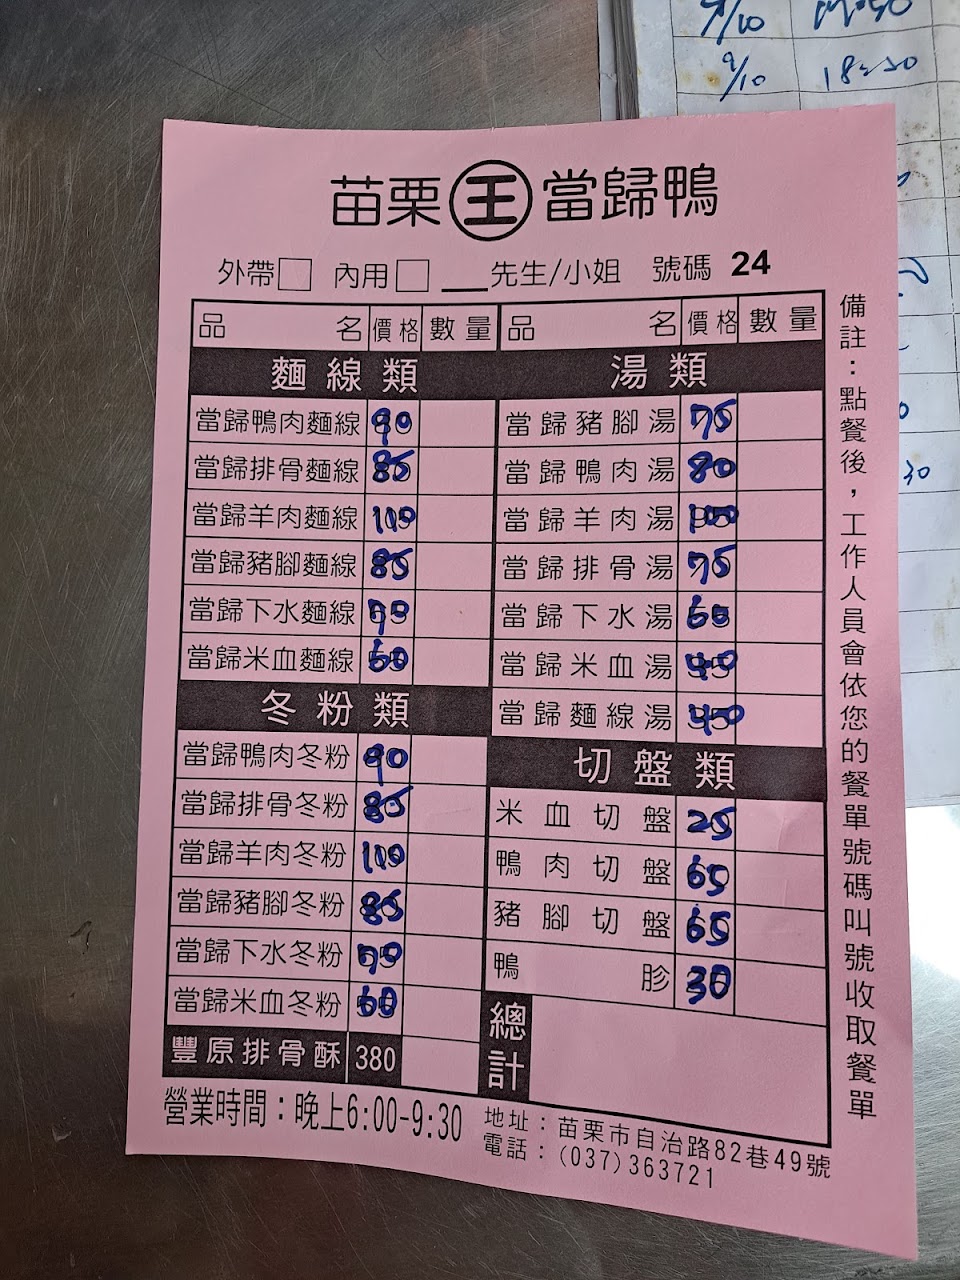 9/10 18:50
苗栗王當歸鴨
外帶□ 內用□ ___先生/小姐 號碼 24
品名 價格 數量 品名 價格 數量
麵線類
當歸鴨肉麵線 90
當歸排骨麵線 85
當歸羊肉麵線 110
當歸豬腳麵線 85
當歸下水麵線 70
當歸米血麵線 60
冬粉類
當歸鴨肉冬粉 90
當歸排骨冬粉 85
當歸羊肉冬粉 110
當歸豬腳冬粉 85
當歸下水冬粉 70
當歸米血冬粉 60
豐原排骨酥 380
湯類
當歸豬腳湯 75
當歸鴨肉湯 80
當歸羊肉湯 100
當歸排骨湯 75
當歸下水湯 60
當歸米血湯 40
當歸麵線湯 40
切盤類
米血切盤 25
鴨肉切盤 65
豬腳切盤 65
鴨胗 30
總計
營業時間：晚上6:00-9:30
地址：苗栗市自治路82巷49號
電話：(037)363721
備註：點餐後，工作人員會依您的餐單號碼叫號收取餐單